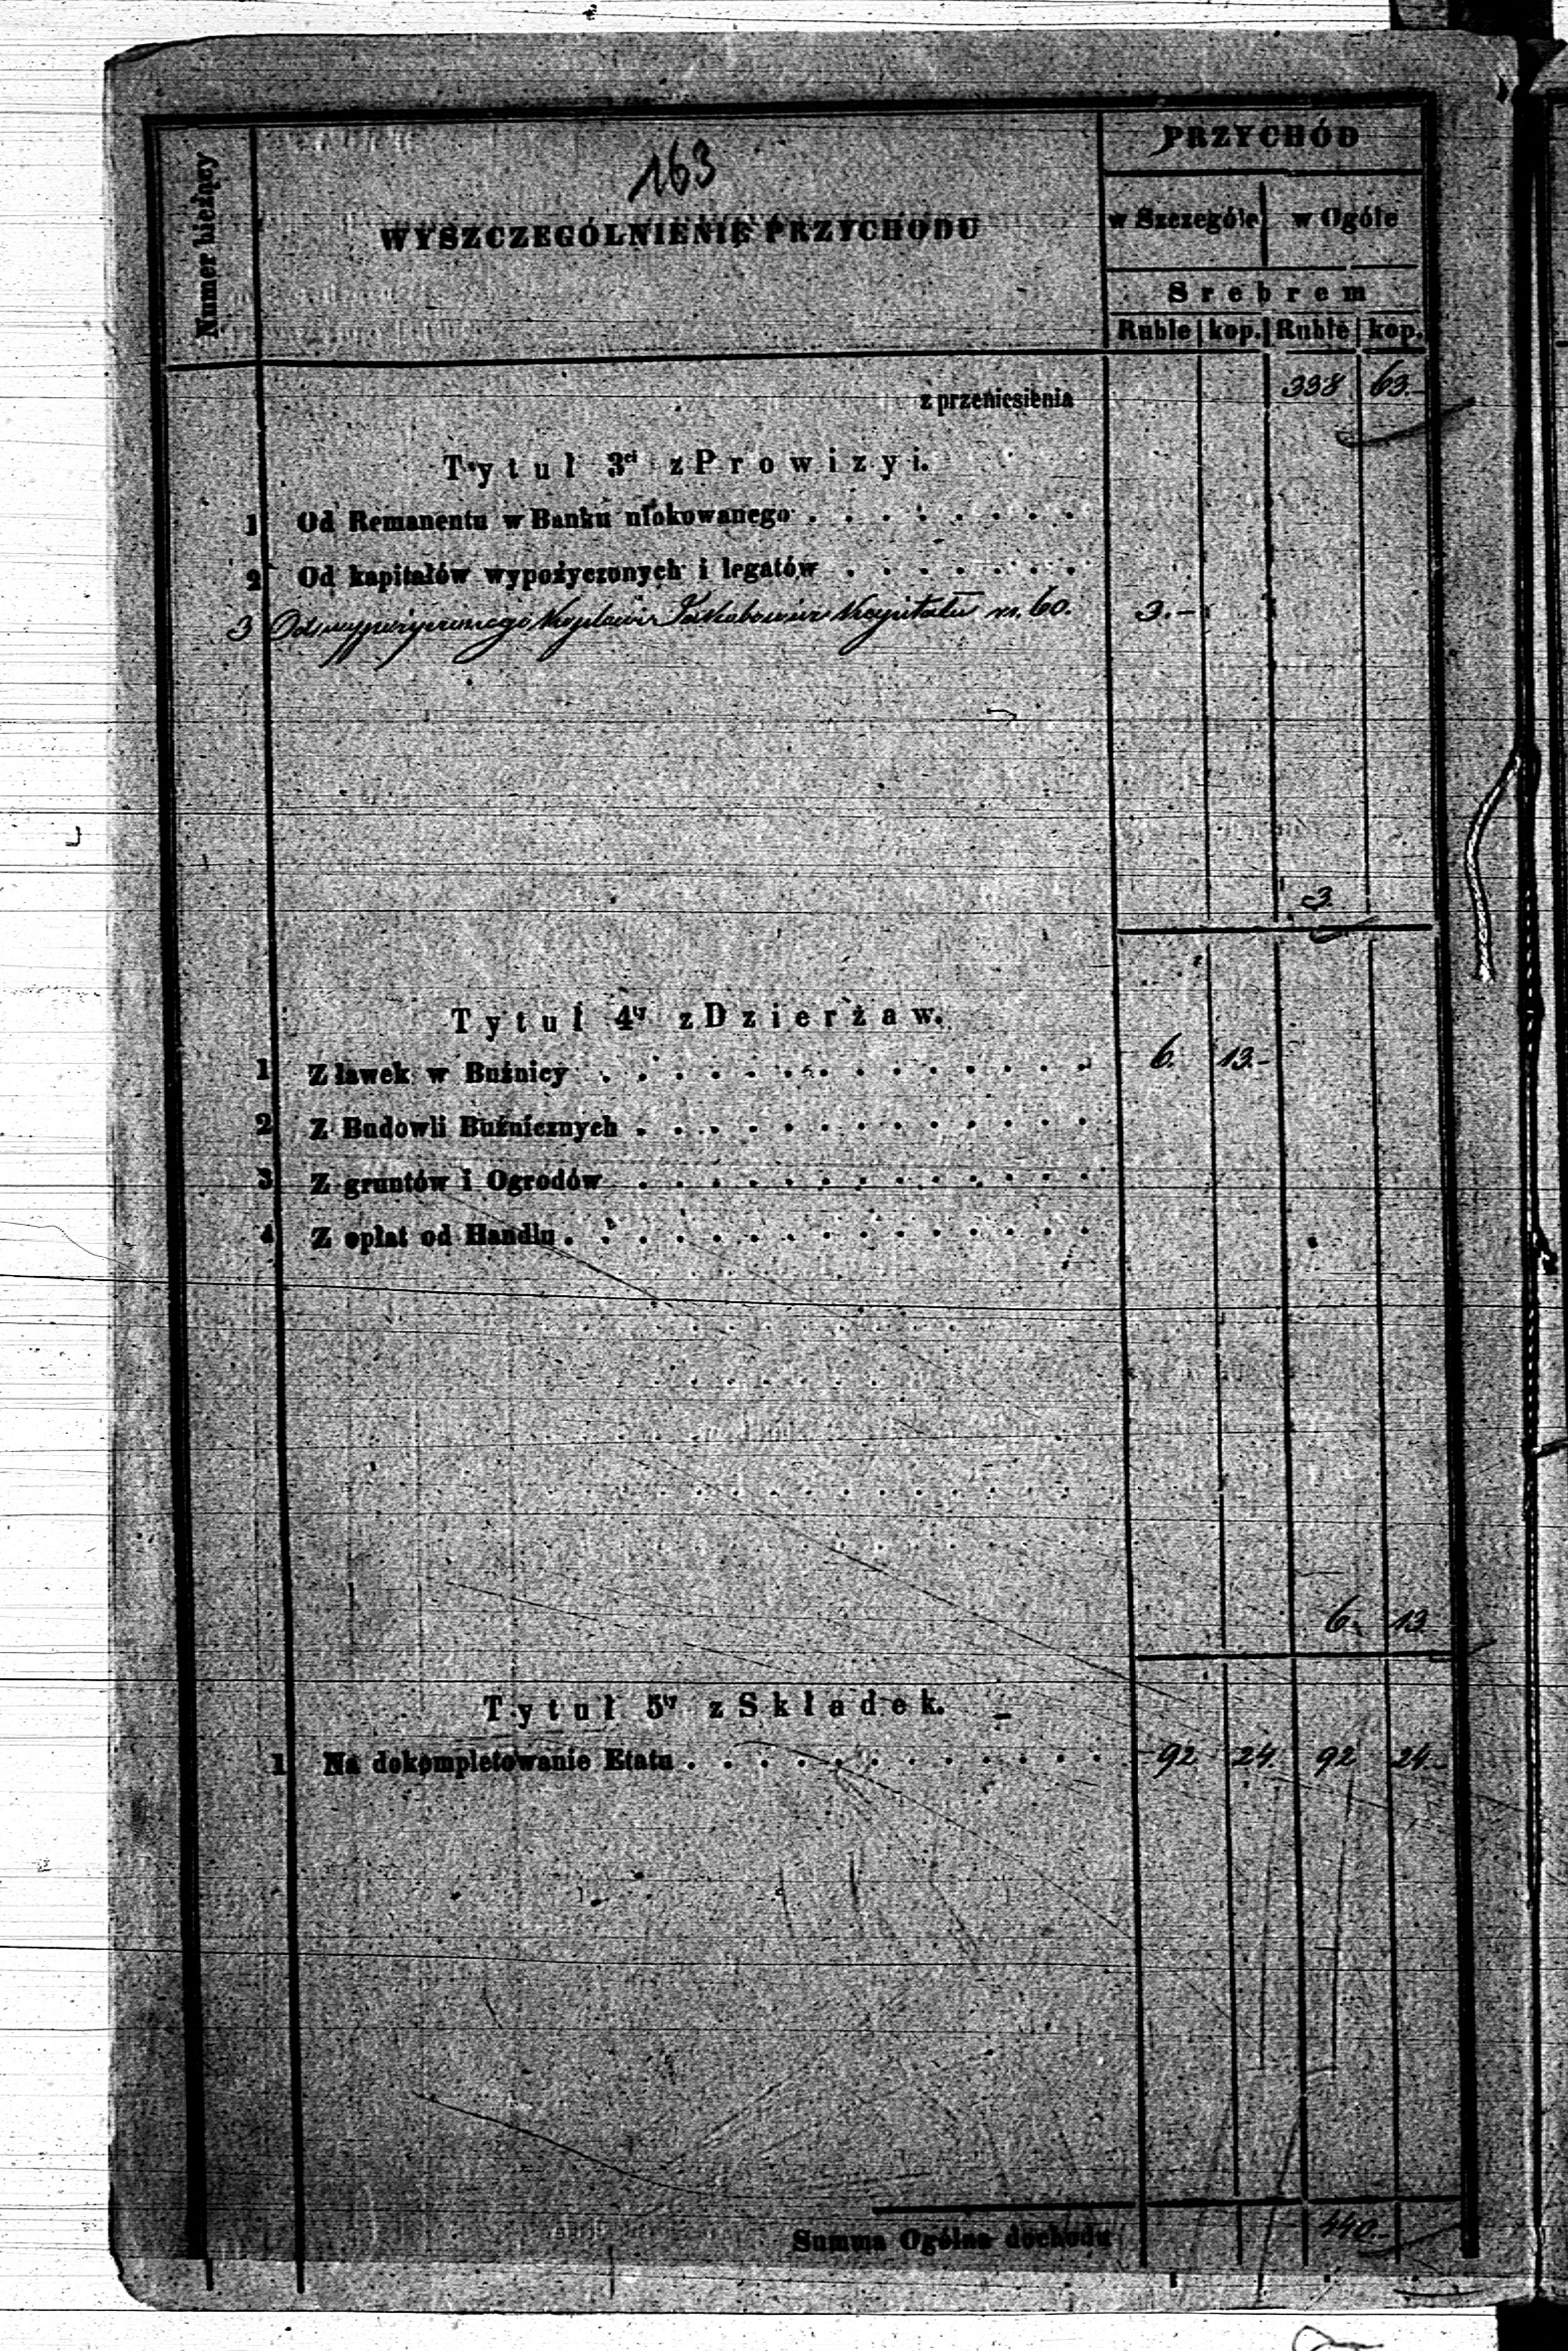 163
Numer bieżący
WYSZCZEGÓLNIENIE PRZYCHODU
PRZYCHÓD
w Szczególe w Ogóle
Srebrem
Ruble kop. Ruble kop.
z przeniesienia 338 63.
Tytuł 3ci z Prowizyi.
1 Od Remanentu w Banku ulokowanego
2 Od kapitałów wypożyczonych i legatów
3 Od wypożyczonego Kapitału rs. 60. 3.-
3.
Tytuł 4ty z Dzierżaw.
1 Z ławek w Bużnicy 6. 13.-
2 Z Budowli Bużnicznych
3 Z gruntów i Ogrodów
4 Z opłat od Handlu
6. 13
Tytuł 5ty z Składek.
1 Na dokompletowanie Etatu 92 24. 92 24.-
Summa Ogólna dochodu 440.-